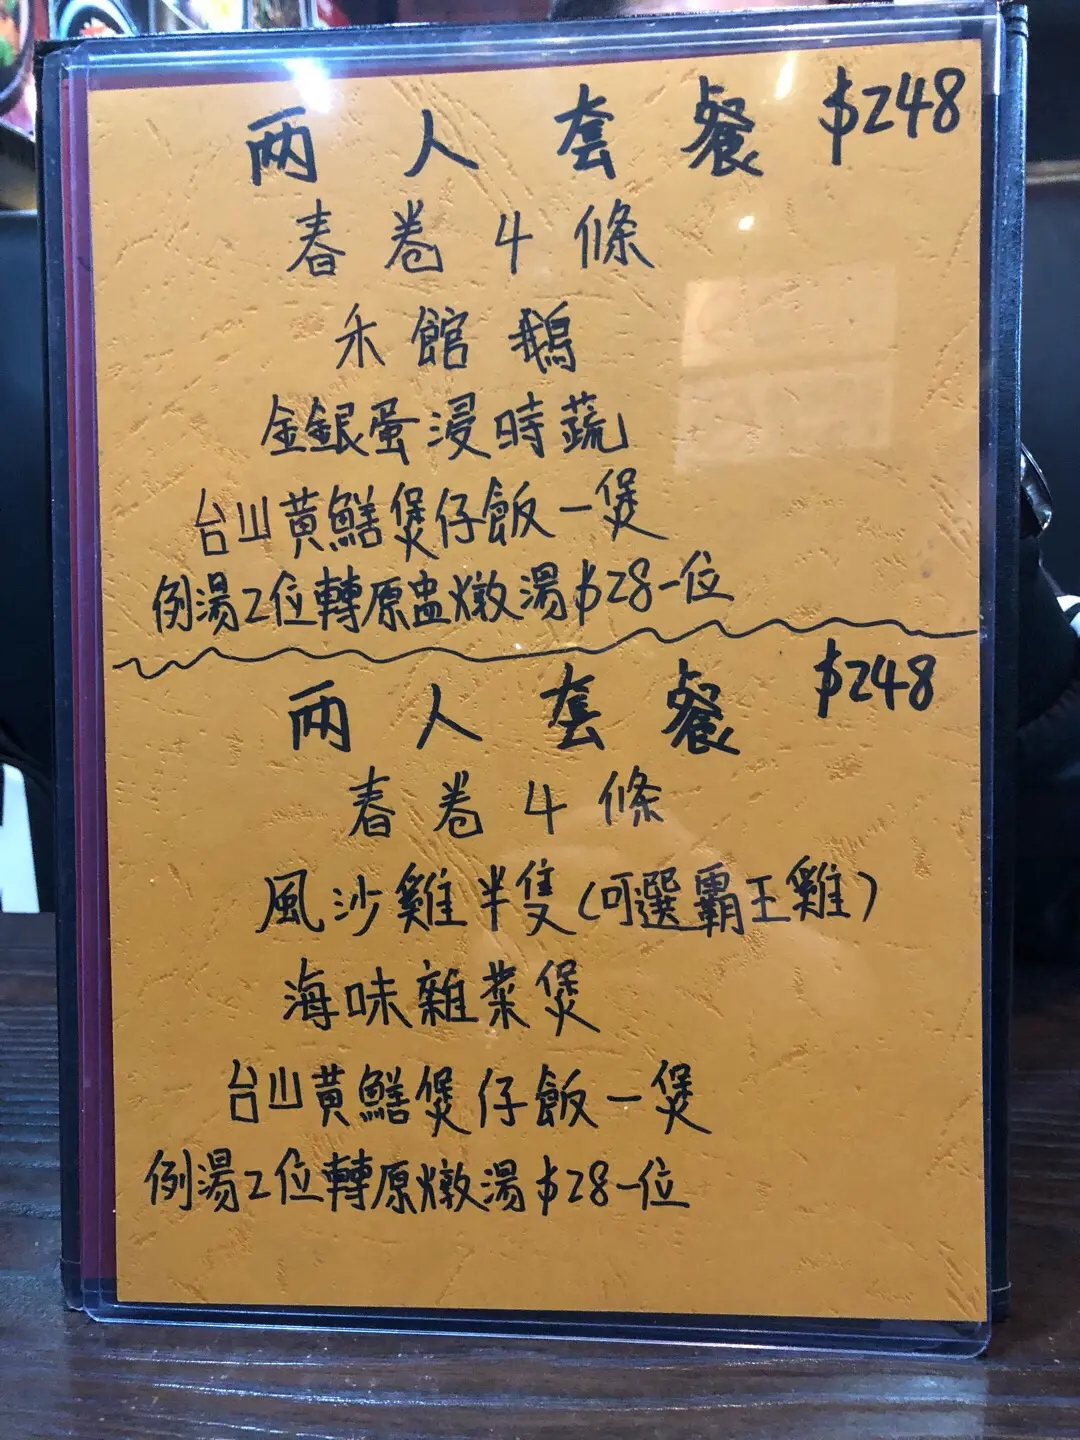 两人套餐 $248
春卷4條
禾館鵝
金銀蛋浸時蔬
台山黃鱔煲仔飯一煲
例湯2位轉原盅燉湯$28一位
两人套餐 $248
春卷4條
風沙雞半隻(可選霸王雞)
海味雜菜煲
台山黃鱔煲仔飯一煲
例湯2位轉原燉湯$28一位